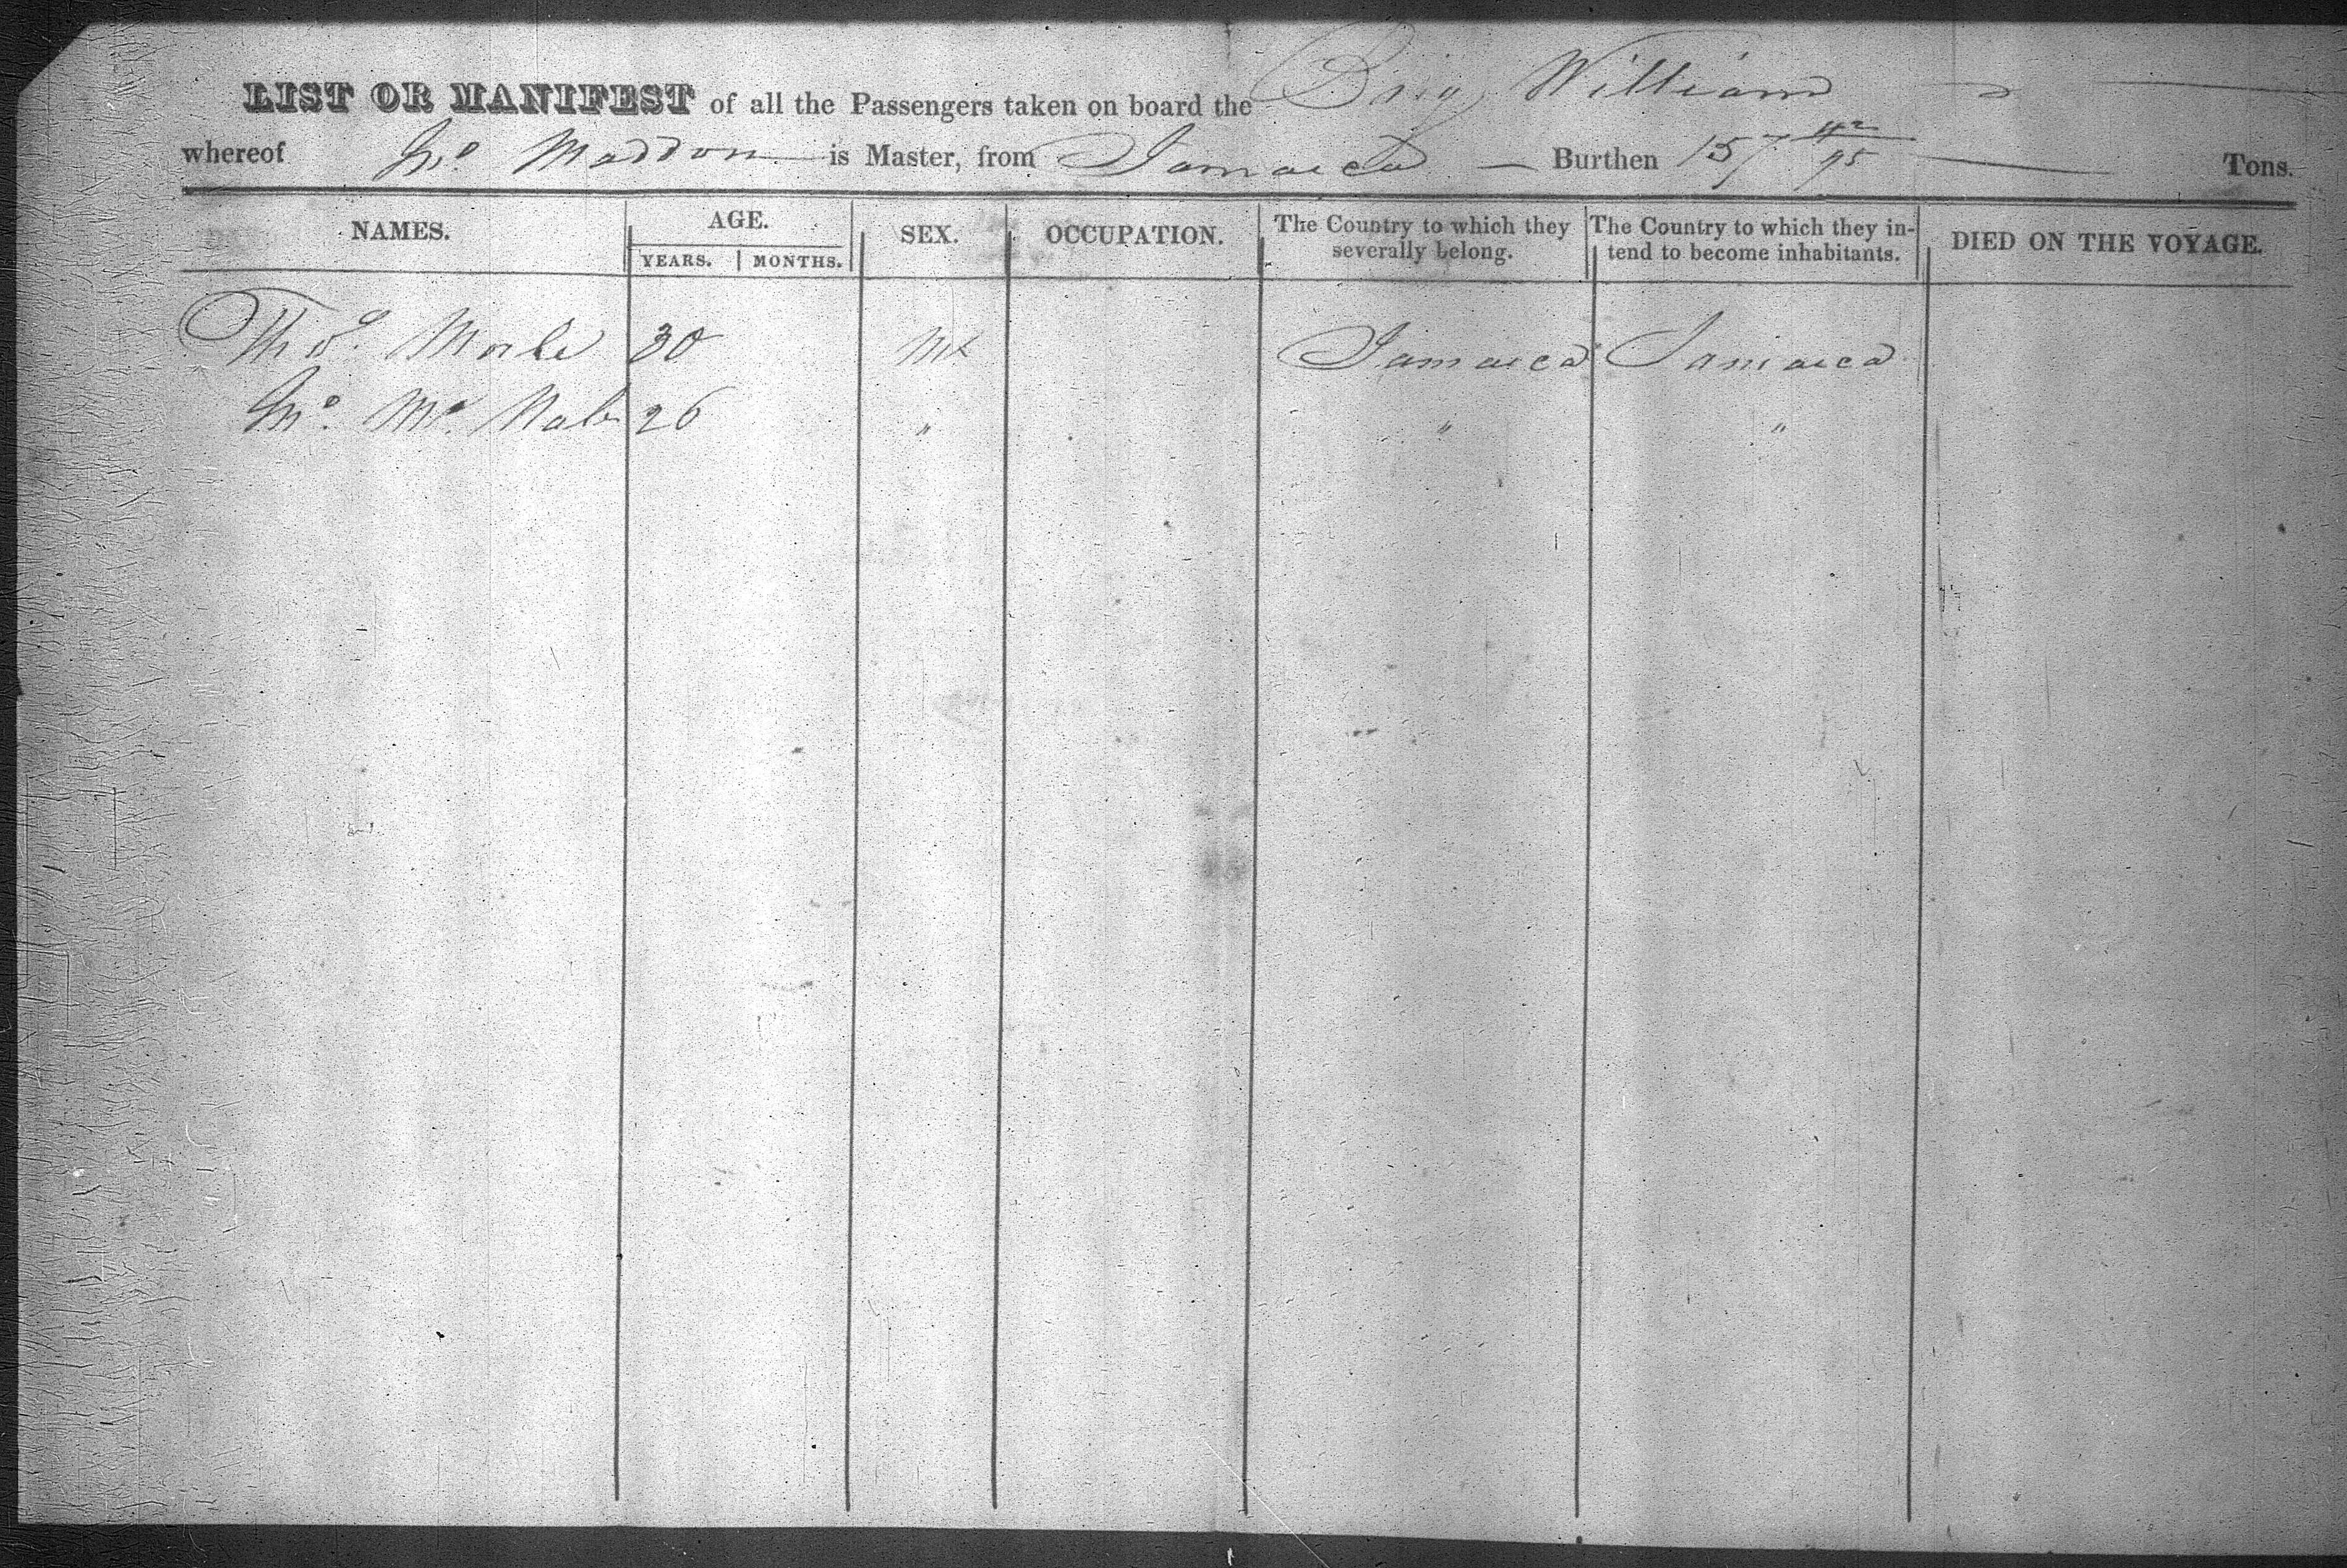 LIST OR MANIFEST of all the Passengers taken on board the Brig William
whereof Jno Maddon is Master, from Jamaica — Burthen 157 42/95 Tons.
NAMES. AGE. SEX. OCCUPATION. The Country to which they severally belong. The Country to which they intend to become inhabitants. DIED ON THE VOYAGE.
YEARS. MONTHS.
Thos. 30 Jamaica Jamaica
Jno. Mc. Nab 26 " " "